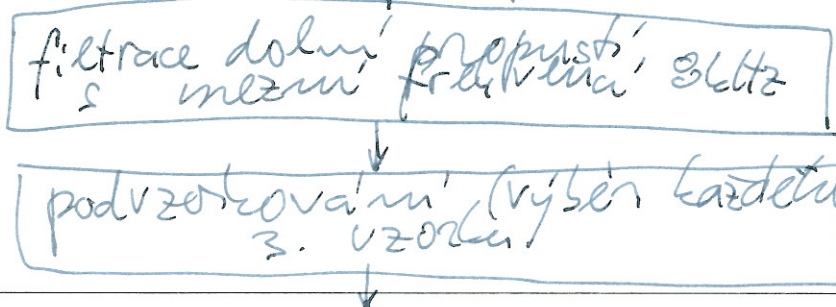 filtrace dolní propustí
s mezní frekvencí 8kHz
podvzorkování (výběr každého
3. vzorku)